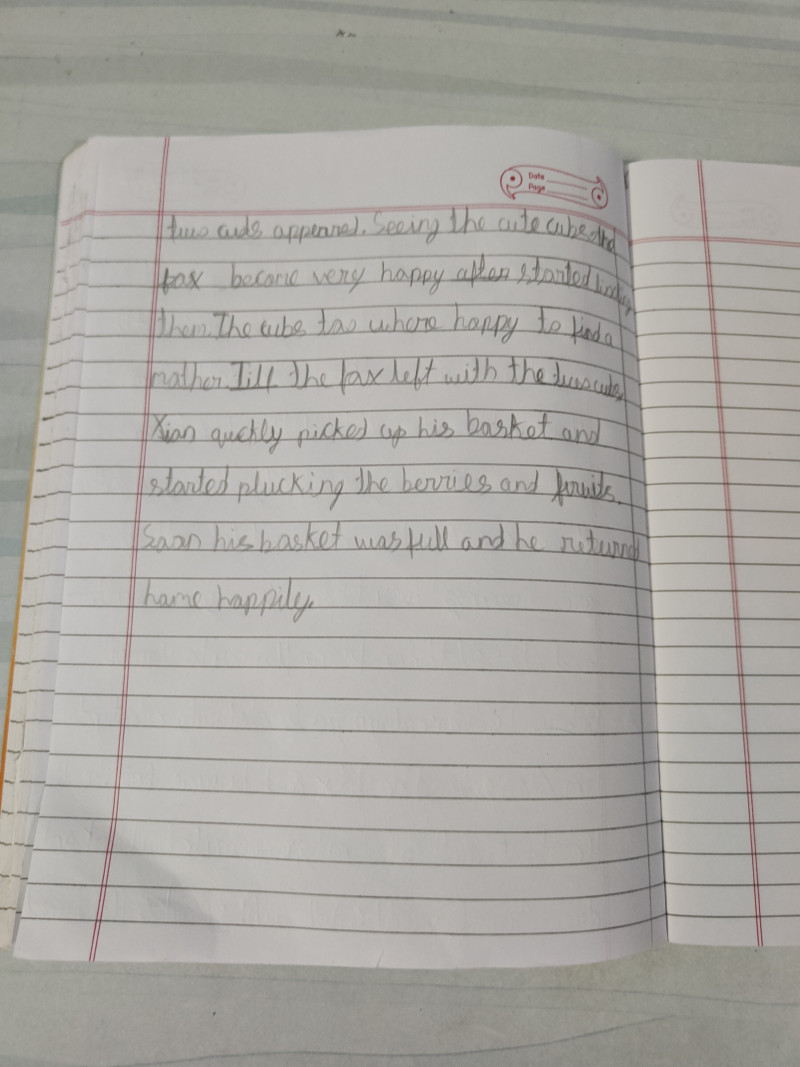 Date
Page
two cuds appeared. Seeing the cute cubs the
fox became very happy after started licking
them. The cubs too where happy to find a
mother. Till the fox left with the two cubs,
Xian quckly picked up his basket and
started plucking the berries and fruits.
Soon his basket was full and he returned
home happily.